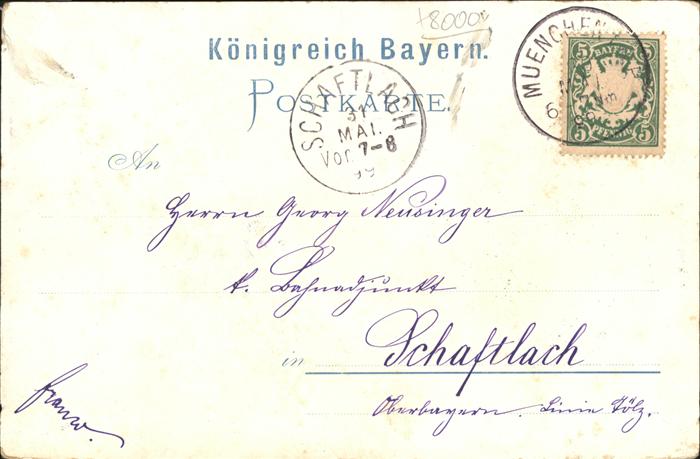 +8000
Königreich Bayern.
POSTKARTE.
SCHAFTLACH
31
MAI.
Vor. 7-8
99
MUENCHEN
BAYERN
5 5
5 PFENNIG 5
An
Herrn Georg Neusinger
k. Bahnadjunkt
in Schaftlach
Oberbayern. Linie Tölz.
franco.